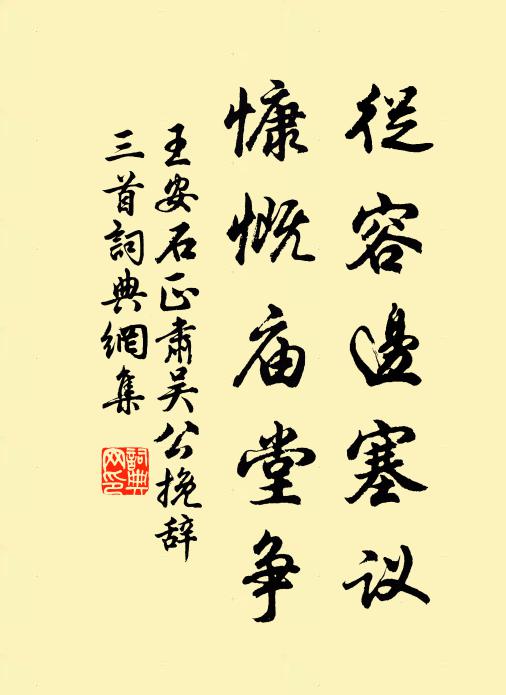 従容邊塞议
慷慨庙堂争
王安石正肅吴公挽辞
三首詞典網集
詞典网印